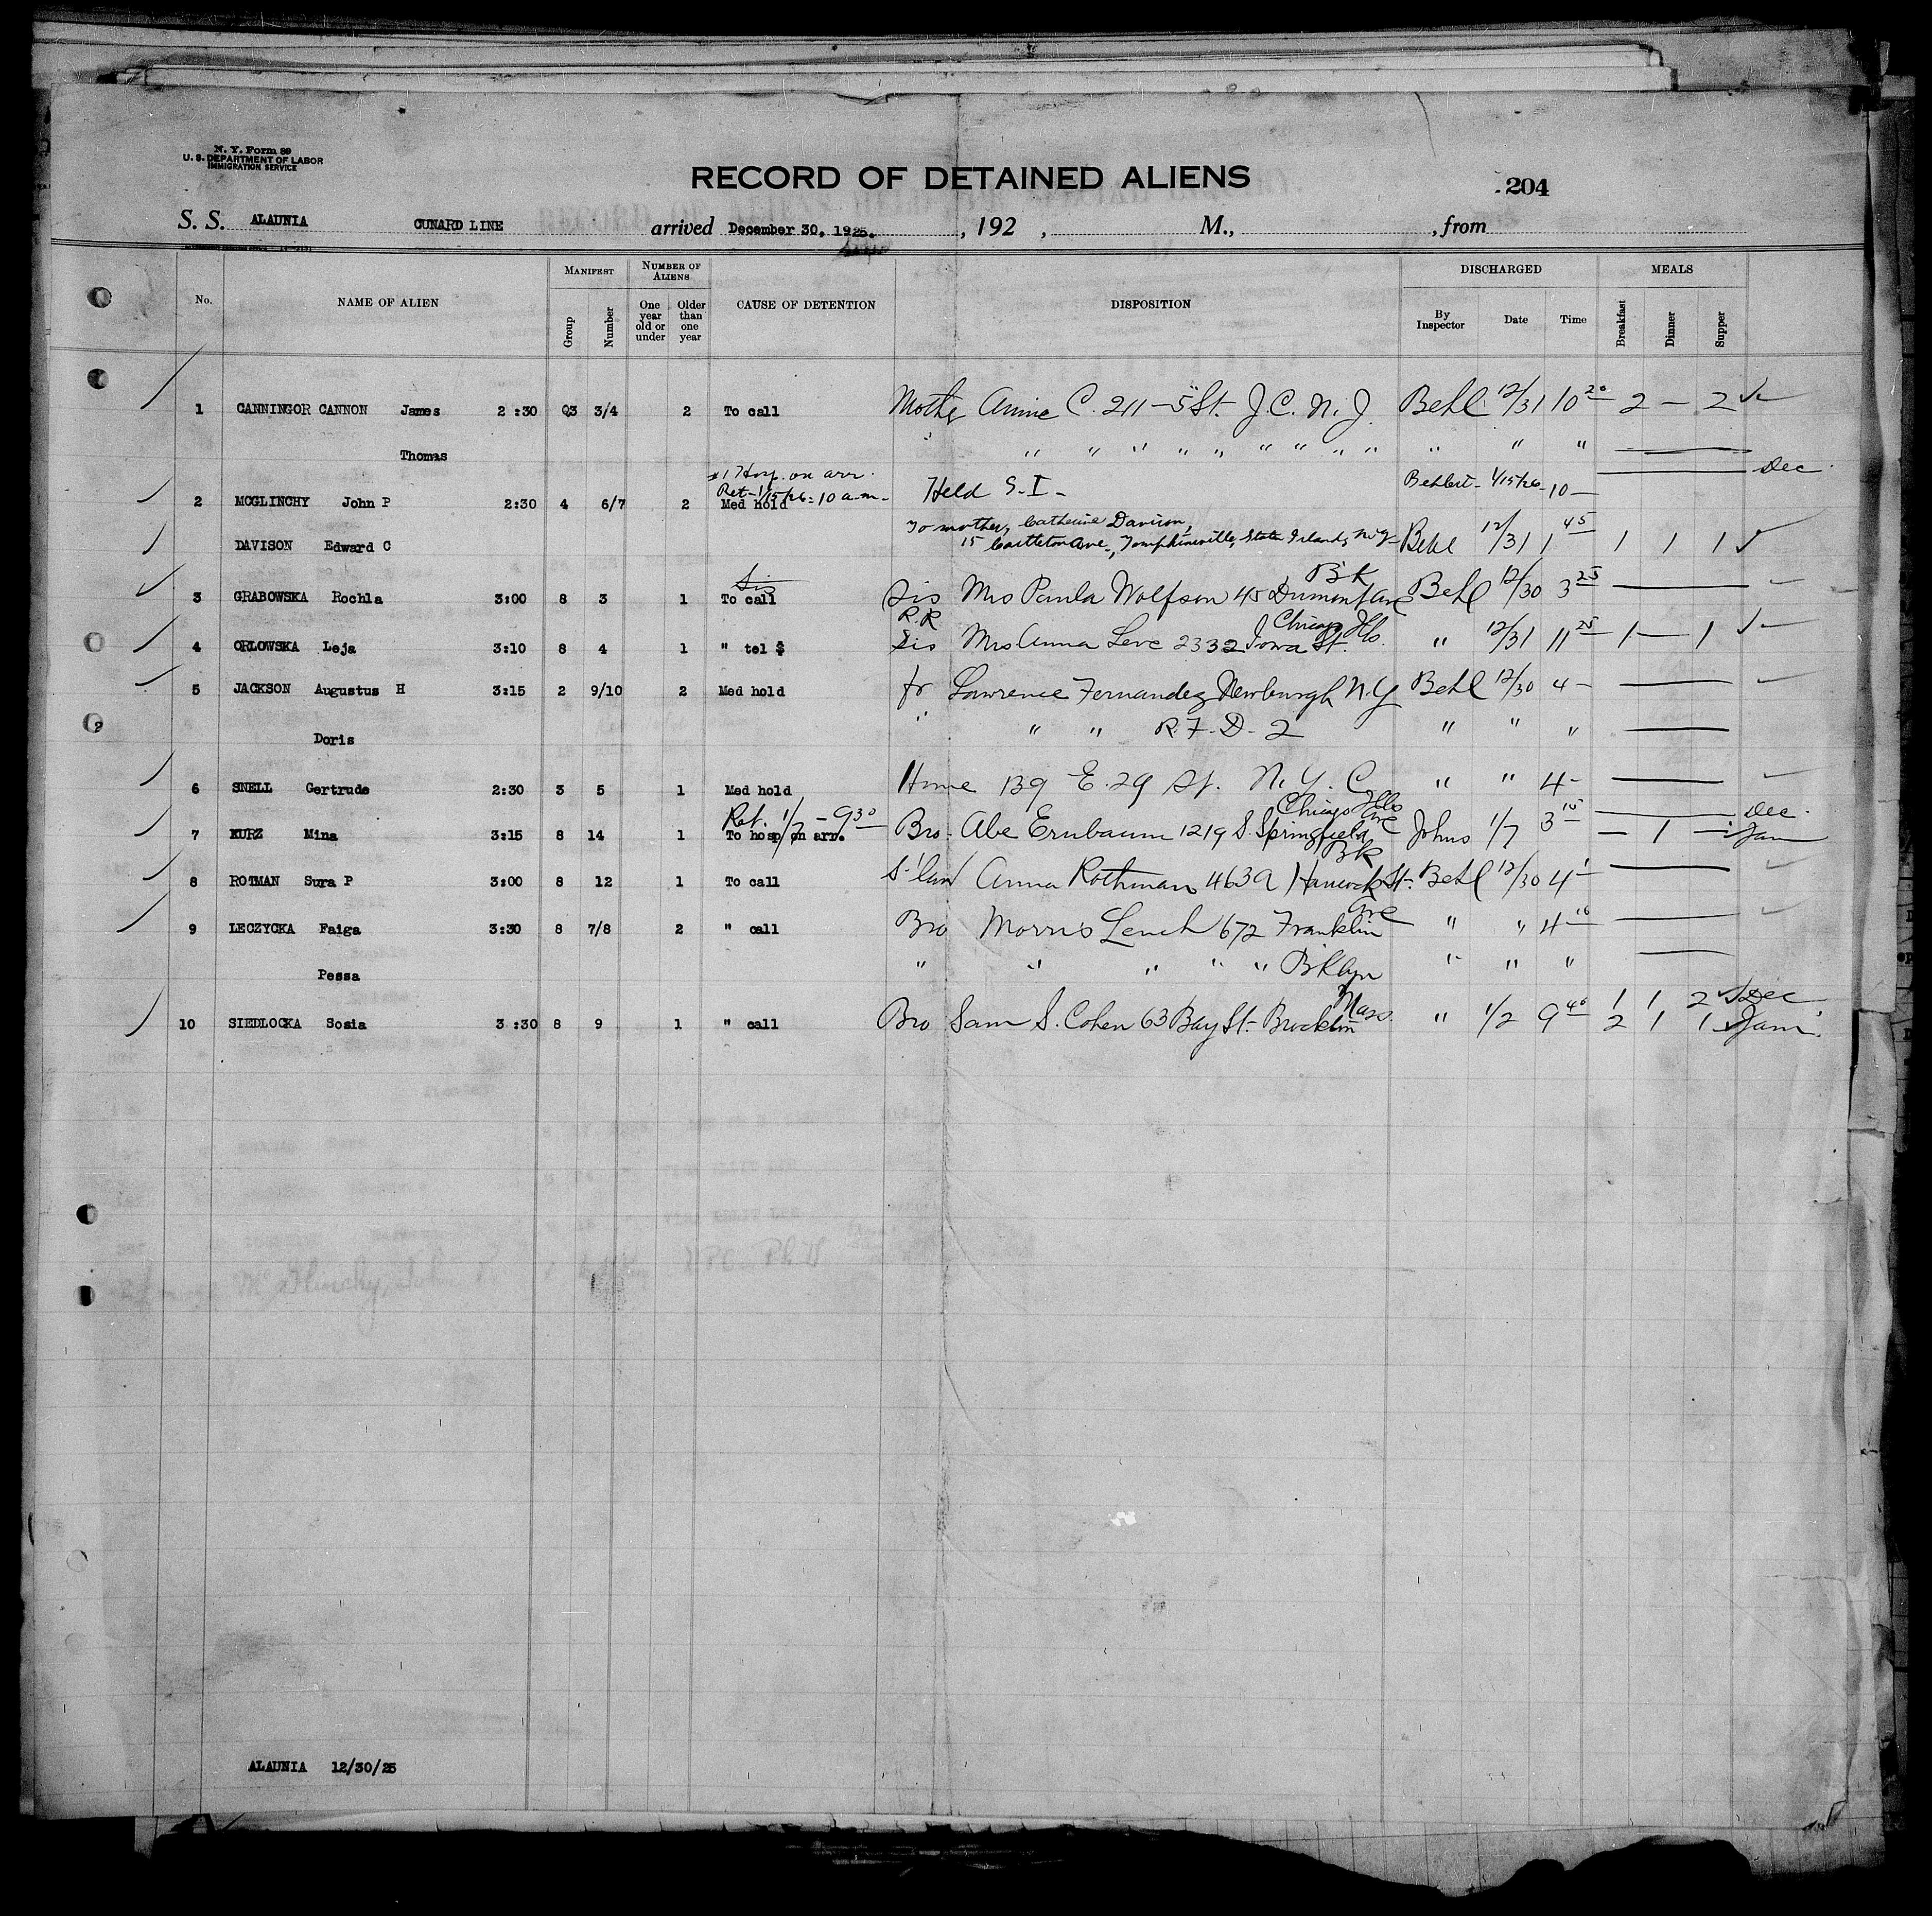 N. Y. Form 89
U. S. DEPARTMENT OF LABOR
IMMIGRATION SERVICE
RECORD OF DETAINED ALIENS
204
S. S. ALAUNIA CUNARD LINE arrived December 30, 1925. , 192 , M., , from
No. NAME OF ALIEN MANIFEST Group Number NUMBER OF ALIENS One year old or under Older than one year CAUSE OF DETENTION DISPOSITION DISCHARGED By Inspector Date Time MEALS Breakfast Dinner Supper
1 CANNINGOR CANNON James 2:30 Q3 3/4 2 To call Mother Annie C. 211-5 St. J.C. N.J. Behl 12/31 10 20 2 — 2
Thomas " " " " " " " " " " " " "
#1 Hosp. on arr. Dec.
Ret- 1/15/26 = 10 a.m.
2 MCGLINCHY John P 2:30 4 6/7 2 Med hold Held S.I- 1/15/26 10 —
To mother, Catherine Davison,
DAVISON Edward C 15 Castleton Ave., Tompkinsville, Staten Island, N.Y- Behl 12/31 1 45 1 1 1
Sis B'K
3 GRABOWSKA Rochla 3:00 8 3 1 To call Sis Mrs Paula Wolfson 45 Dumont Ave Behl 12/30 3 25
R.R Chicago Ills.
4 ORLOWSKA Leja 3:10 8 4 1 " tel $ Sis Mrs Anna Leve 2332 Iowa St. " 12/31 11 25 1 — 1
5 JACKSON Augustus H 3:15 2 9/10 2 Med hold fr Lawrence Fernandez Newburgh N.Y Behl 12/30 4 -
Doris " " " R.F.D. 2 " " "
6 SNELL Gertrude 2:30 3 5 1 Med hold Home 139 E. 29 St. N.Y.C " " 4 -
Ret. 1/7 - 9 30 Chicago Ills Ave Dec.
7 KURZ Mina 3:15 8 14 1 To hosp on arr. Bro. Abe Ernbaum 1219 S. Springfield Johns 1/7 3 15 — 1 — Jan
BK
8 ROTMAN Sura P 3:00 8 12 1 To call S'law Anna Rothman 463A Hancock St. Behl 12/30 4
Ave
9 LECZYCKA Faiga 3:30 8 7/8 2 " call Bro Morris Lench 672 Franklin " " 4 10
Pessa " " " " " B'Klyn " " "
Mass. 1 1 2 Dec
10 SIEDLOCKA Sosia 3:30 8 9 1 " call Bro Sam S. Cohen 63 Bay St- Brockton " 1/2 9 40 2 1 1 Jan.
ALAUNIA 12/30/25